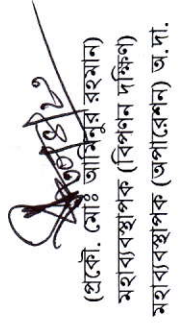 (প্রকৌ. মোঃ আমিনুর রহমান)
মহাব্যবস্থাপক (বিপণন দক্ষিণ)
মহাব্যবস্থাপক (অপারেশন) অ.দা.